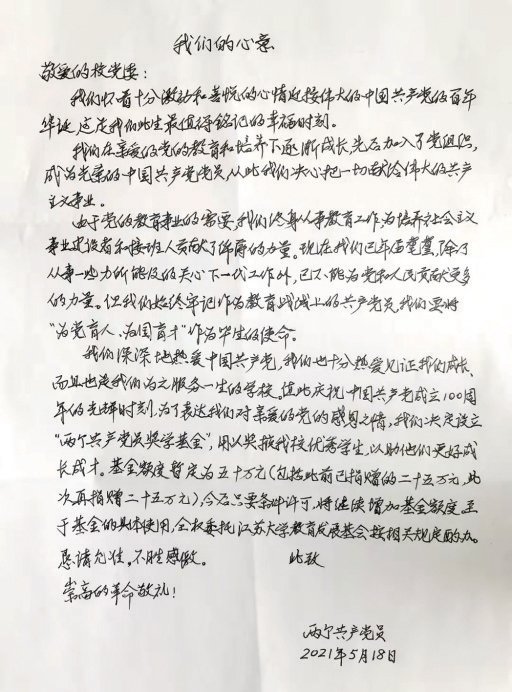 我们的心意
敬爱的校党委：
我们怀着十分激动和喜悦的心情迎接伟大的中国共产党的百年
华诞，这是我们此生最值得铭记的幸福时刻。
我们在亲爱的党的教育和培养下逐渐成长，先后加入了党组织，
成为光荣的中国共产党党员，从此我们决心把一切献给伟大的共产
主义事业。
由于党的教育事业的需要，我们终身从事教育工作，为培养社会主义
事业建设者和接班人贡献了绵薄的力量。现在我们已年届耄耋，除了
从事一些力所能及的关心下一代工作外，已不能为党和人民贡献更多
的力量。但我们始终牢记作为教育战线上的共产党员，我们要将
“为党育人、为国育才”作为毕生的使命。
我们深深地热爱中国共产党，我们也十分热爱见证我们成长、
而且也是我们为之服务一生的学校。值此庆祝中国共产党成立100周
年的光辉时刻，为了表达我们对亲爱的党的感恩之情，我们决定设立
“两个共产党员奖学基金”，用以奖掖我校优秀学生，以助他们更好成
长成才。基金额度暂定为五十万元（包括此前已捐赠的二十五万元，此
次再捐赠二十五万元），今后只要条件许可，将继续增加基金额度。至
于基金的具体使用，全权委托江苏大学教育发展基金会按相关规定酌办。
恳请允准。不胜感激。 此致
崇高的革命敬礼！
两个共产党员
2021年5月18日